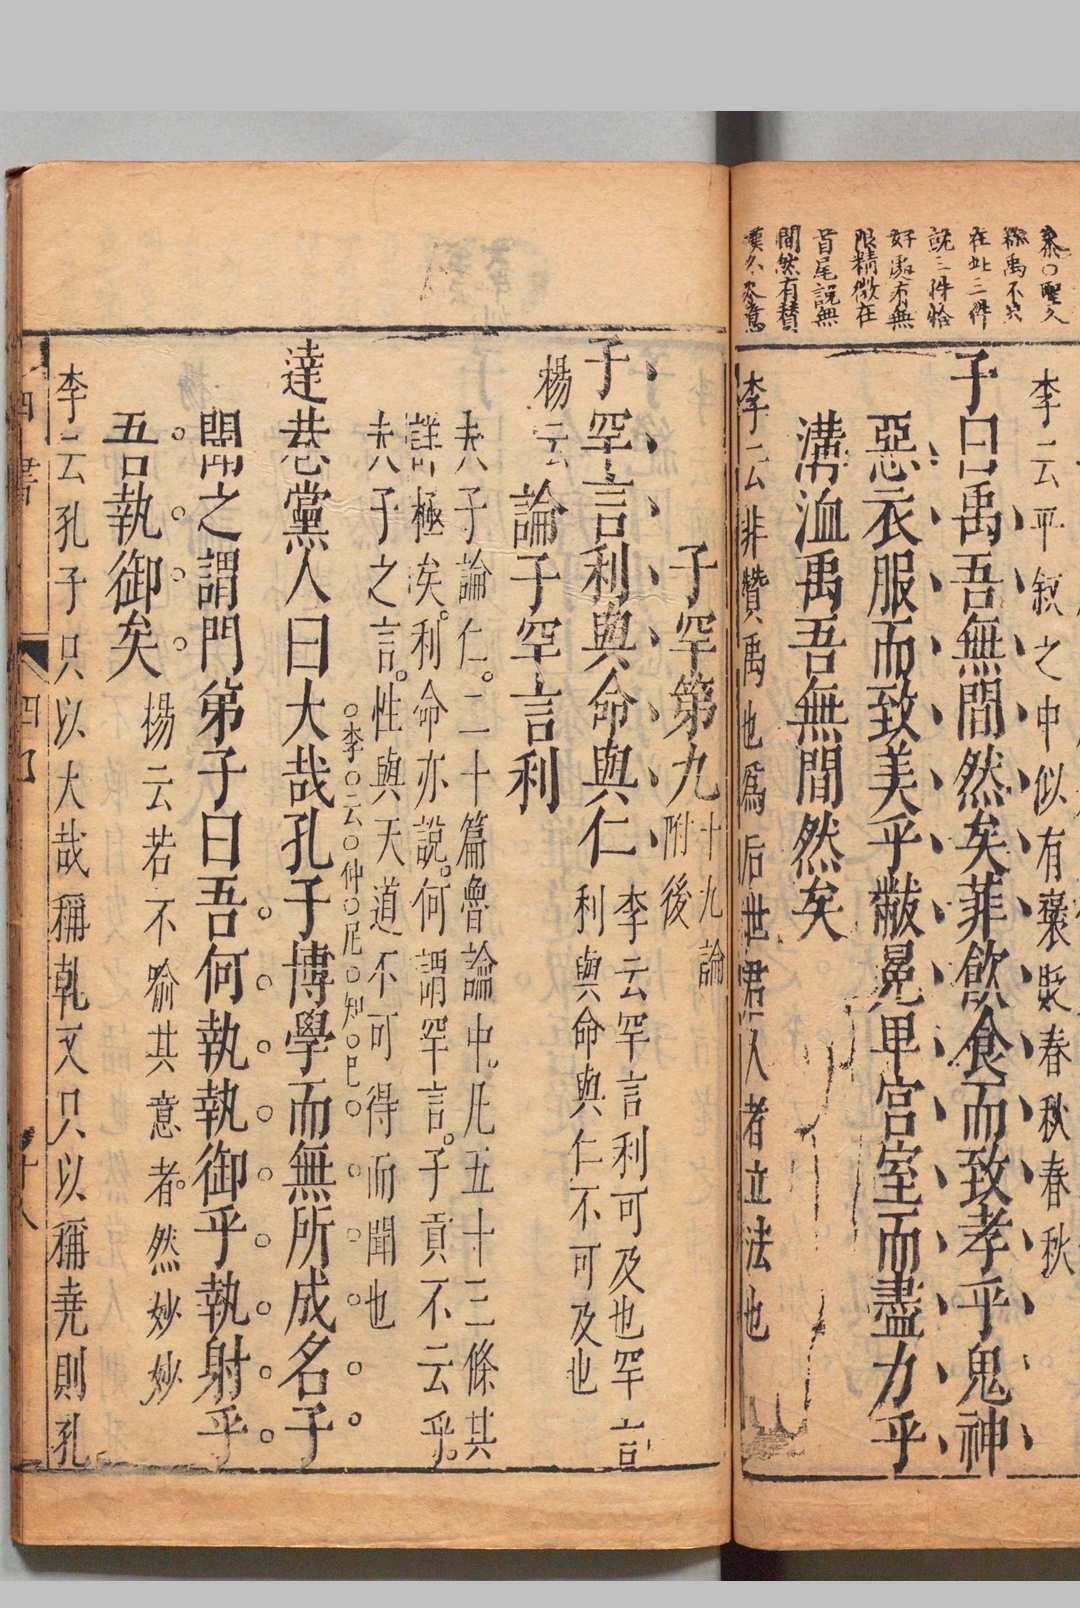 在此三件
就三件恰
好處有無
限精微在
首尾說無
間然有贊
李云平敘之中似有褒貶春秋春秋
子曰禹吾無間然矣菲飲食而致孝乎鬼神
惡衣服而致美乎黻冕卑宮室而盡力乎
溝洫禹吾無間然矣
李云非贊禹也為后世君人者立法也
子罕第九
十九論
附後
子罕言利與命與仁
李云罕言利可及也罕言
利與命與仁不可及也
楊云
論子罕言利
夫子論仁二十篇魯論中凡五十三條其
詳極矣利命亦說何謂罕言子貢不云乎
夫子之言性與天道不可得而聞也
李云仲尼知已
達巷黨人曰大哉孔子博學而無所成名子
聞之謂門弟子曰吾何執執御乎執射乎
吾執御矣
楊云若不喻其意者然妙妙
李云孔子只以大哉稱乾又只以稱堯則孔
四書
十八